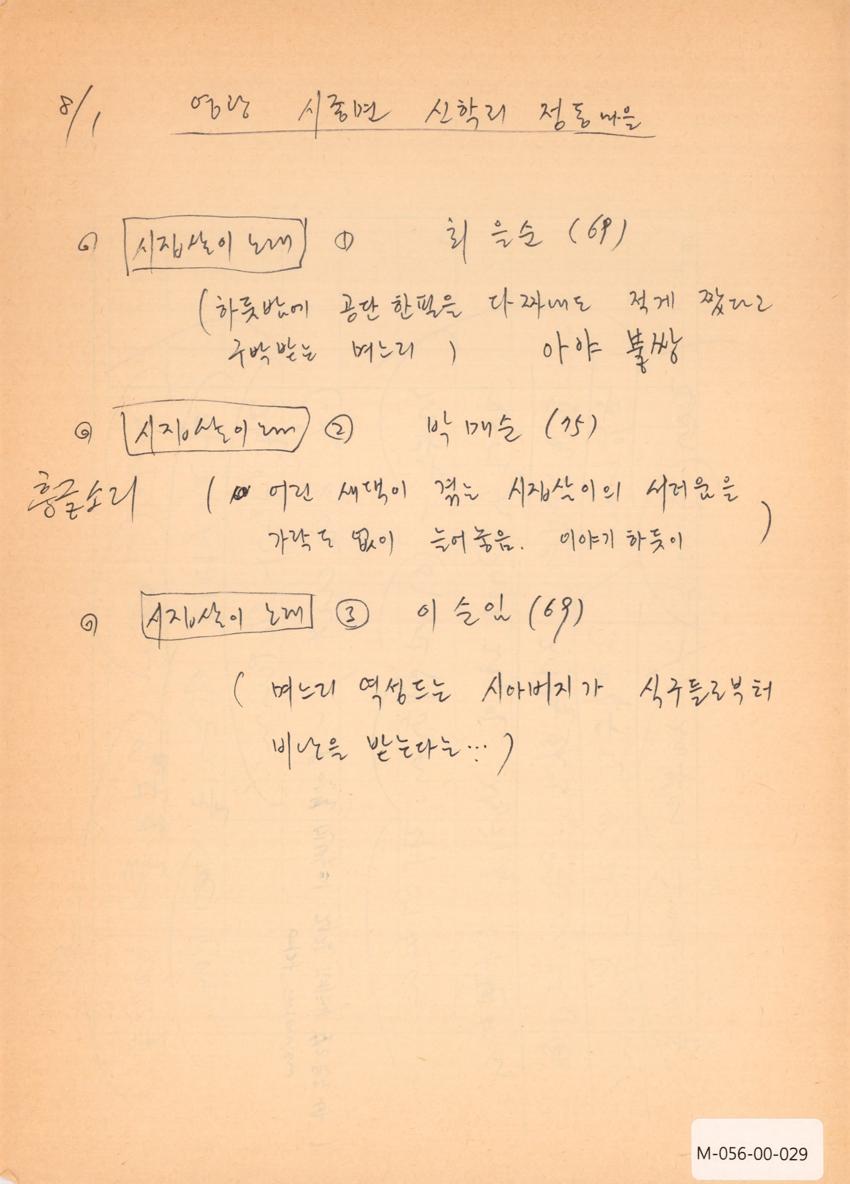 8/1 영광 시종면 신학리 정동마을
시집살이 노래 ① 최을순 (69)
(하룻밤에 공단 한필을 다 짜내도 적게 짰다고
구박받는 며느리) 아야 불쌍
시집살이 노래 ② 박매순 (75)
흥글소리 ( 어린 새댁이 겪는 시집살이의 서러움을
가락도 없이 늘어놓음. 이야기하듯이 )
시집살이 노래 ③ 이순임 (69)
( 며느리 역성드는 시아버지가 식구들로부터
비난을 받는다는… )
M-056-00-029